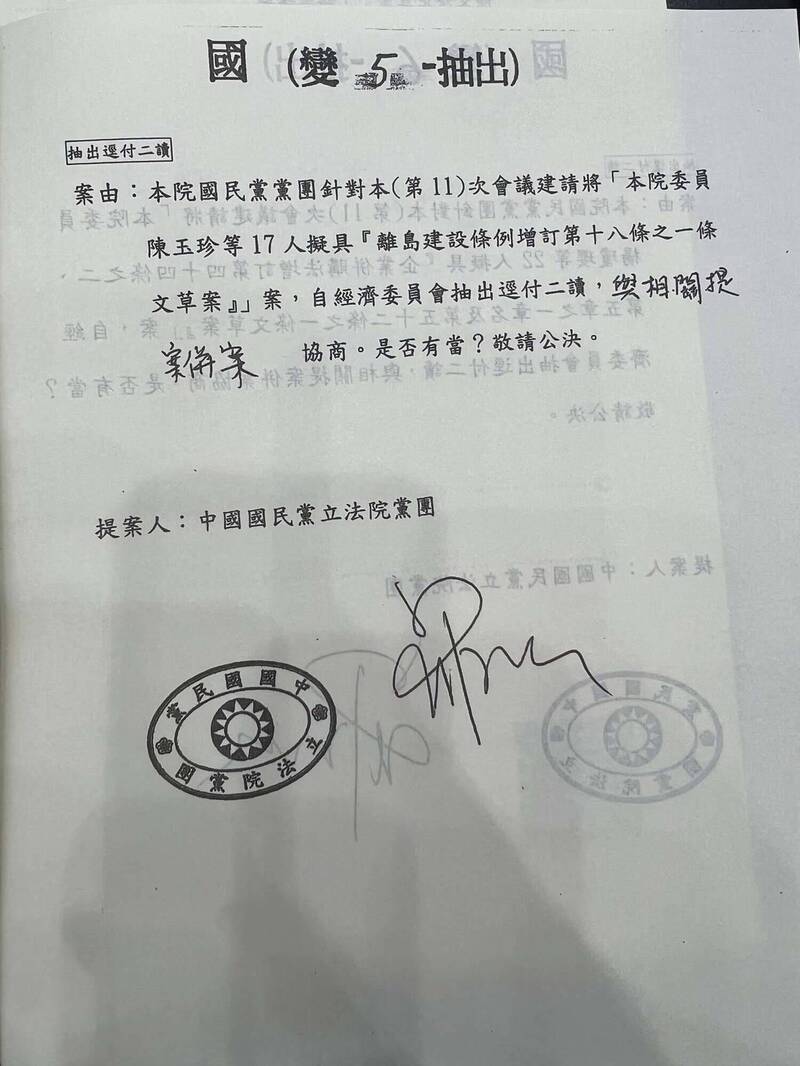 國(變5-抽出)
抽出逕付二讀
案由：本院國民黨黨團針對本(第11)次會議建請將「本院委員
陳玉珍等17人擬具『離島建設條例增訂第十八條之一條
文草案』」案，自經濟委員會抽出逕付二讀，與相關提
案併案 協商。是否有當？敬請公決。
提案人：中國國民黨立法院黨團
中國國民黨
立法院黨團